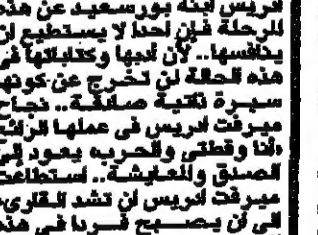 ادريس ابنة بورسعيد عن هذه
المرحلة فإن احدا لا يستطيع ان
ينافسها.. لأن ادبها وكتاباتها فى
هذه الحالة لن تخرج عن كونها
سيرة ذاتية صادقة.. نجاح
ميرفت ادريس فى عملها الرائع
«أنا وقطتى والحرب» يعود إلى
الصدق والمعايشة.. استطاعت
ميرفت ادريس ان تشد القارىء
الى أن يصبح فردا فى هذه